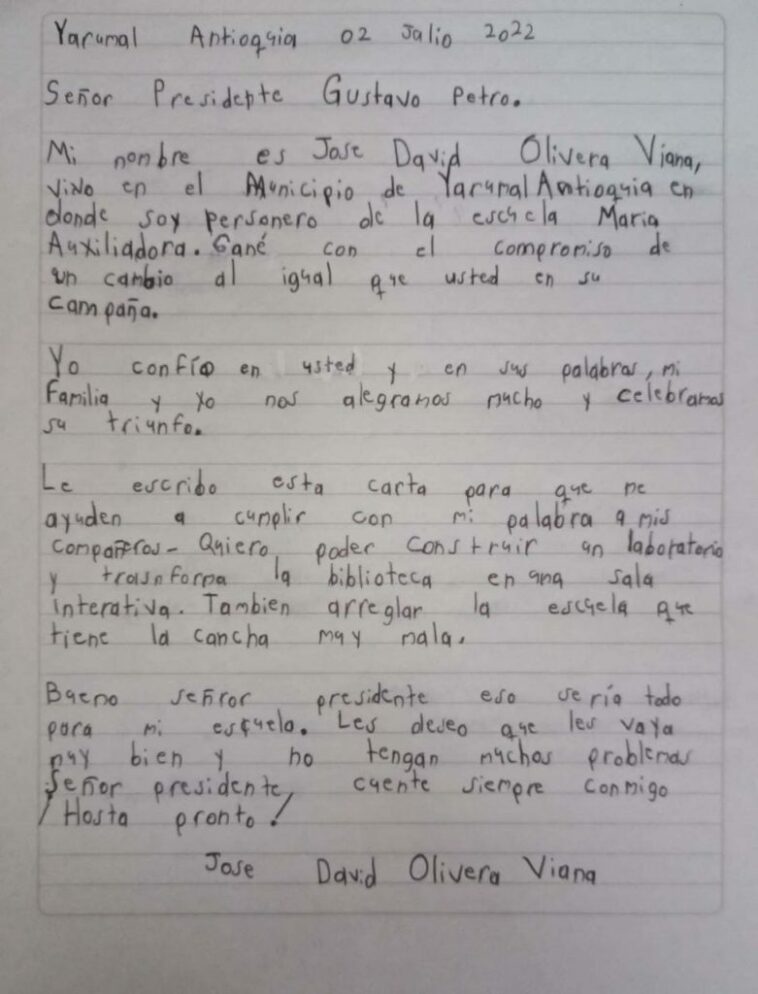 Yarumal Antioquia 02 Julio 2022
Señor Presidente Gustavo Petro.
Mi nombre es Jose David Olivera Viana,
vivo en el Municipio de Yarumal Antioquia en
donde soy personero de la escuela Maria
Auxiliadora. Gané con el compromiso de
un cambio al igual que usted en su
campaña.
Yo confío en usted y en sus palabras, mi
familia y yo nos alegramos mucho y celebramos
su triunfo.
Le escribo esta carta para que me
ayuden a cumplir con mi palabra a mis
compañros- Quiero poder construir un laboratorio
y trasnforma la biblioteca en una sala
interativa. Tambien arreglar la escuela que
tiene la cancha muy mala.
Bueno señror presidente eso seria todo
para mi escuela. Les deseo que les vaya
muy bien y no tengan muchos problemas
Señor presidente, cuente siempre conmigo
¡Hasta pronto!
Jose David Olivera Viana